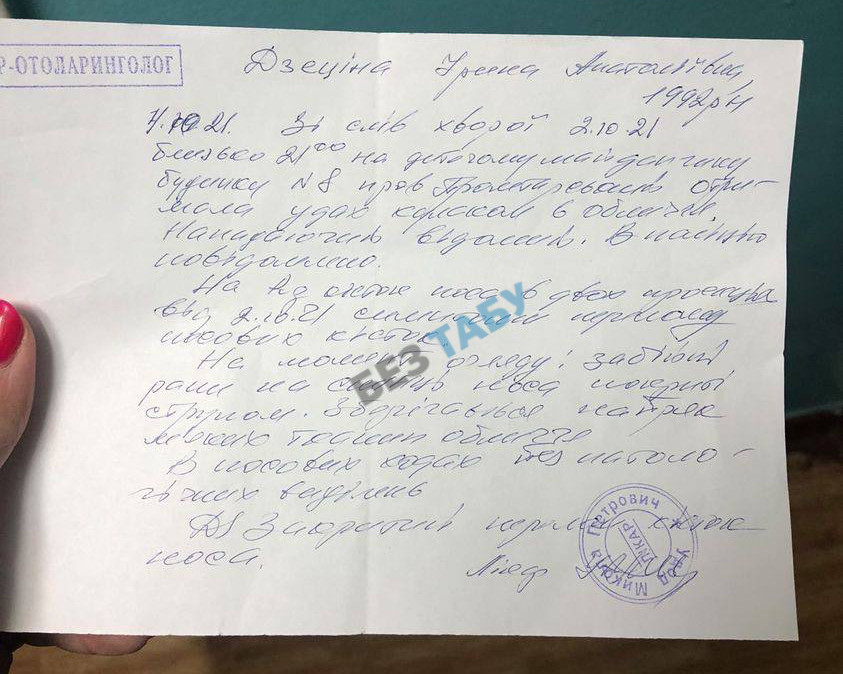 Р-ОТОЛАРИНГОЛОГ
Дзеціна Ірина Анатоліївна
1992 рн
21. Зі слів хворої 2.10.21
близько 21⁰⁰ на дитячому майданчику
будинку N8 пров отри-
мала удар в обличчя.
відомий. В поліцію
повідомлено.
На носа в двох проекціях
від 2.10.21 перелому
кісток
На момент огляду: забійні
рани на спинці носа покриті
струпом. Зберігається набряк
мяких тканин обличчя
В носових ходах без патоло-
гічних виділень
DS Закритий перелом кісток
носа.
Лікар
Микола Петрович
ЛІКАР
БЕЗ ТАБУ